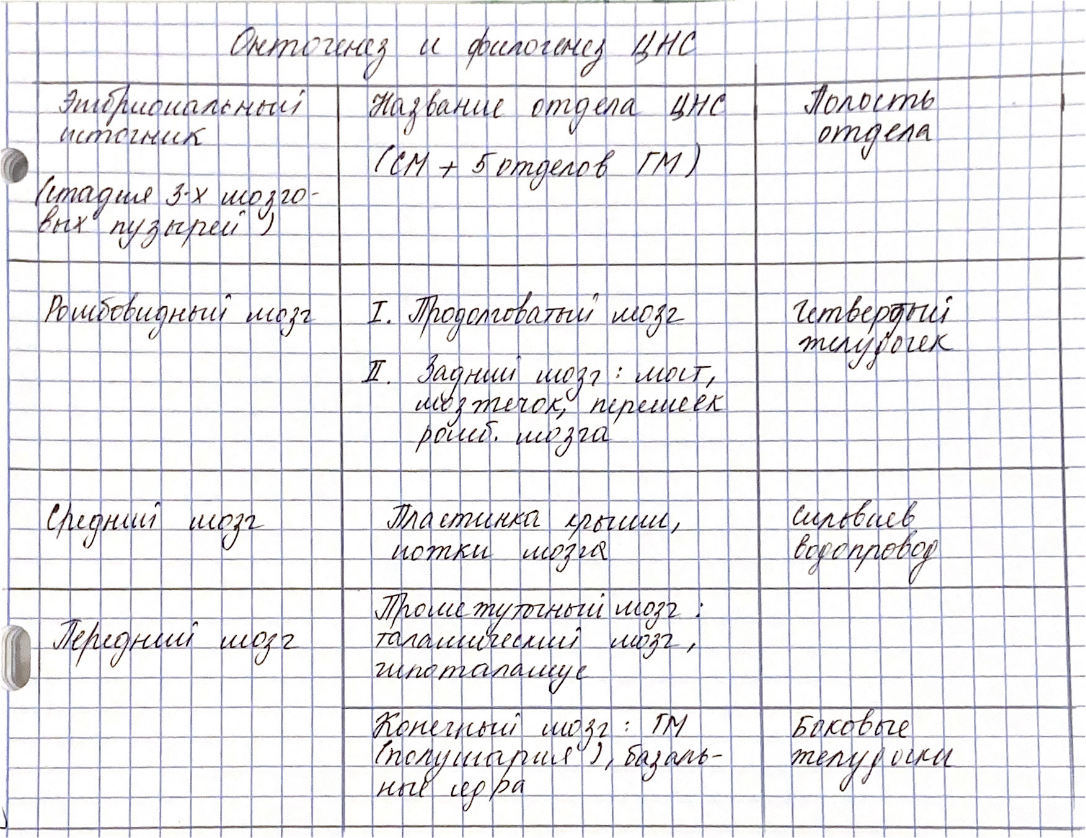 Онтогенез и филогенез ЦНС
Эмбриональный
источник
(стадия 3-х мозго-
вых пузырей)
Название отдела ЦНС
(СМ + 5 отделов ГМ)
Полость
отдела
Ромбовидный мозг
I. Продолговатый мозг
II. Задний мозг: мост,
мозжечок, перешеек
ромб. мозга
Четвертый
желудочек
Средний мозг
Пластинка крыши,
ножки мозга
Сильвиев
водопровод
Передний мозг
Промежуточный мозг:
таламический мозг,
гипоталамус
Конечный мозг: ГМ
(полушария), базаль-
ные ядра
Боковые
желудочки